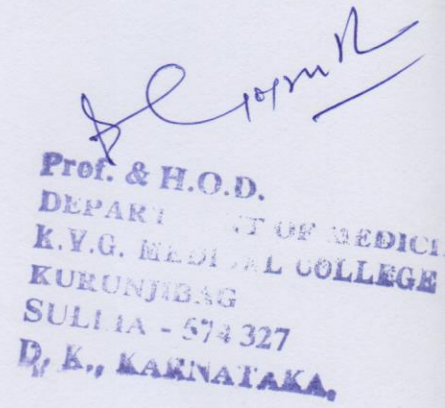 Prof. & H.O.D.
DEPART T OF MEDICI
K.V.G. MEDI AL COLLEGE
KURUNJIBAG
SULLIA - 574 327
D, K., KARNATAKA,